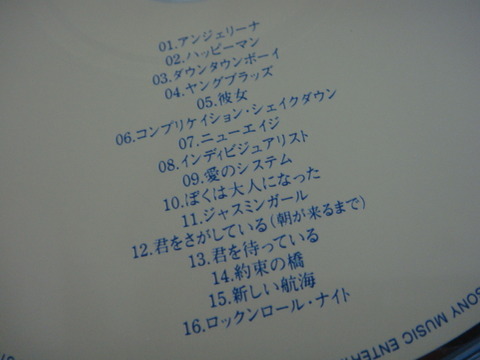 01.アンジェリーナ
02.ハッピーマン
03.ダウンタウンボーイ
04.ヤングブラッズ
05.彼女
06.コンプリケイション・シェイクダウン
07.ニューエイジ
08.インディビジュアリスト
09.愛のシステム
10.ぼくは大人になった
11.ジャスミンガール
12.君をさがしている(朝が来るまで)
13.君を待っている
14.約束の橋
15.新しい航海
16.ロックンロール・ナイト
SONY MUSIC